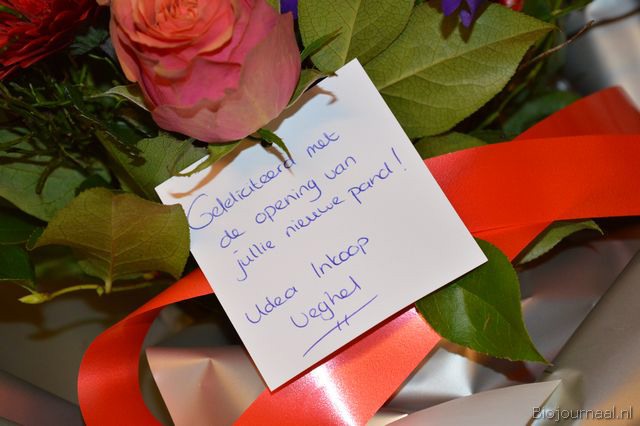 Gefeliciteerd met
de opening van
jullie nieuwe pand!
Udea Inkoop
Veghel
Biojournaal.nl